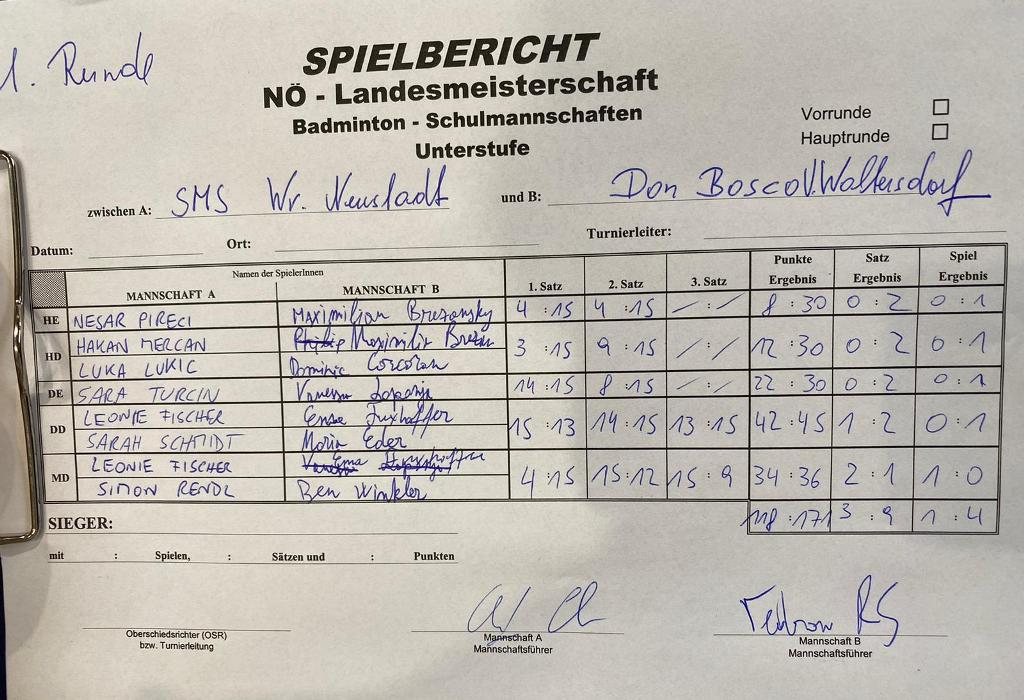 1. Runde
SPIELBERICHT
NÖ - Landesmeisterschaft
Badminton - Schulmannschaften
Unterstufe
Vorrunde
Hauptrunde
zwischen A: SMS Wr. Neustadt und B: Don Bosco V. Waltersdorf
Datum: Ort: Turnierleiter:
Namen der SpielerInnen
MANNSCHAFT A MANNSCHAFT B 1. Satz 2. Satz 3. Satz Punkte Ergebnis Satz Ergebnis Spiel Ergebnis
HE NESAR PIRECI Maximilian 4 : 15 4 : 15 / : / 8 : 30 0 : 2 0 : 1
HD HAKAN MERCAN 3 : 15 9 : 15 / : / 12 : 30 0 : 2 0 : 1
LUKA LUKIC Dominic Corcoran
DE SARA TURCIN Vanessa 14 : 15 8 : 15 / : / 22 : 30 0 : 2 0 : 1
DD LEONIE FISCHER 15 : 13 14 : 15 13 : 15 42 : 45 1 : 2 0 : 1
SARAH SCHMIDT Maria Eder
MD LEONIE FISCHER Ema 4 : 15 15 : 12 15 : 9 34 : 36 2 : 1 1 : 0
SIMON RENDL Ben Winkler
118 : 171 3 : 9 1 : 4
SIEGER:
mit : Spielen, : Sätzen und : Punkten
Oberschiedsrichter (OSR)
bzw. Turnierleitung
Mannschaft A
Mannschaftsführer
Mannschaft B
Mannschaftsführer